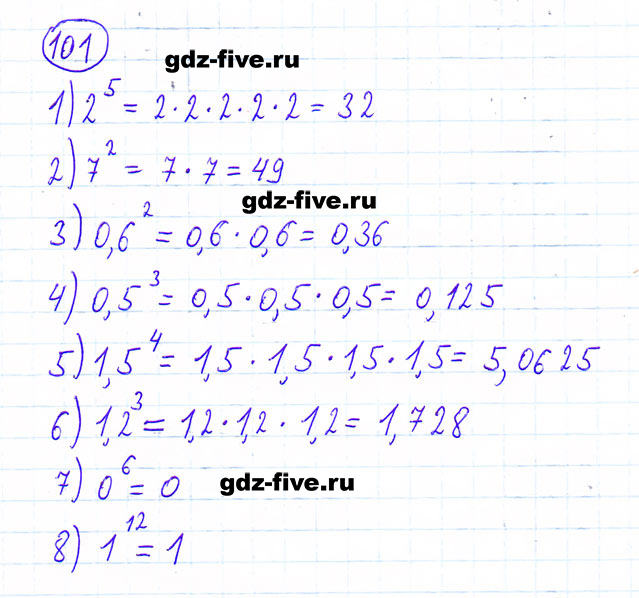 101
gdz-five.ru
1) 2⁵ = 2 · 2 · 2 · 2 · 2 = 32
2) 7² = 7 · 7 = 49
gdz-five.ru
3) 0,6² = 0,6 · 0,6 = 0,36
4) 0,5³ = 0,5 · 0,5 · 0,5 = 0,125
5) 1,5⁴ = 1,5 · 1,5 · 1,5 · 1,5 = 5,0625
6) 1,2³ = 1,2 · 1,2 · 1,2 = 1,728
7) 0⁶ = 0
gdz-five.ru
8) 1¹² = 1